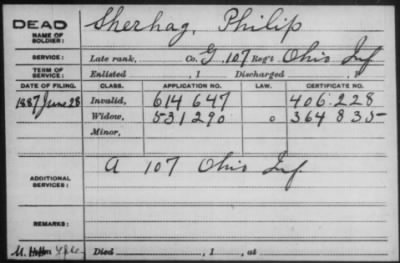 DEAD
NAME OF SOLDIER: Sherhag, Philip
SERVICE: Late rank, Co. G. 107 Reg't Ohio Inf
TERM OF SERVICE: Enlisted , 1 Discharged , 1
DATE OF FILING. CLASS. APPLICATION NO. LAW. CERTIFICATE NO.
1887 June 28 Invalid, 614 647 406.228
Widow, 531290 o 364 835
Minor,
ADDITIONAL SERVICES: A 107 Ohio Inf.
REMARKS:
Died , 1 , at